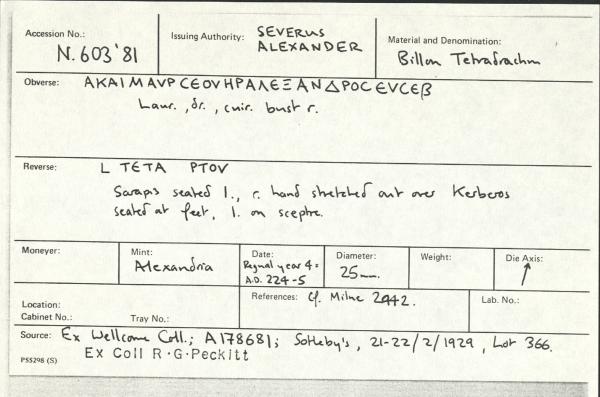 Accession No.: N.603'81
Issuing Authority: SEVERUS ALEXANDER
Material and Denomination: Billon Tetradrachm
Obverse: ΑΚΑΙΜΑVΡCΕΟVΗΡΑΛΕΞΑΝΔΡΟCΕVCΕβ
Laur., dr., cuir. bust r.
Reverse: L TETA PTOV
Sarapis seated l., r. hand stretched out over Kerberos
seated at feet, l. on sceptre.
Moneyer:
Mint: Alexandria
Date: Regnal year 4 = A.D. 224-5
Diameter: 25mm.
Weight:
Die Axis: ↑
Location:
Cabinet No.: Tray No.:
References: Cf. Milne 2442.
Lab. No.:
Source: Ex Wellcome Coll.; A178681; Sotheby's, 21-22/2/1929, Lot 366.
Ex Coll R·G·Peckitt
PS5298 (S)